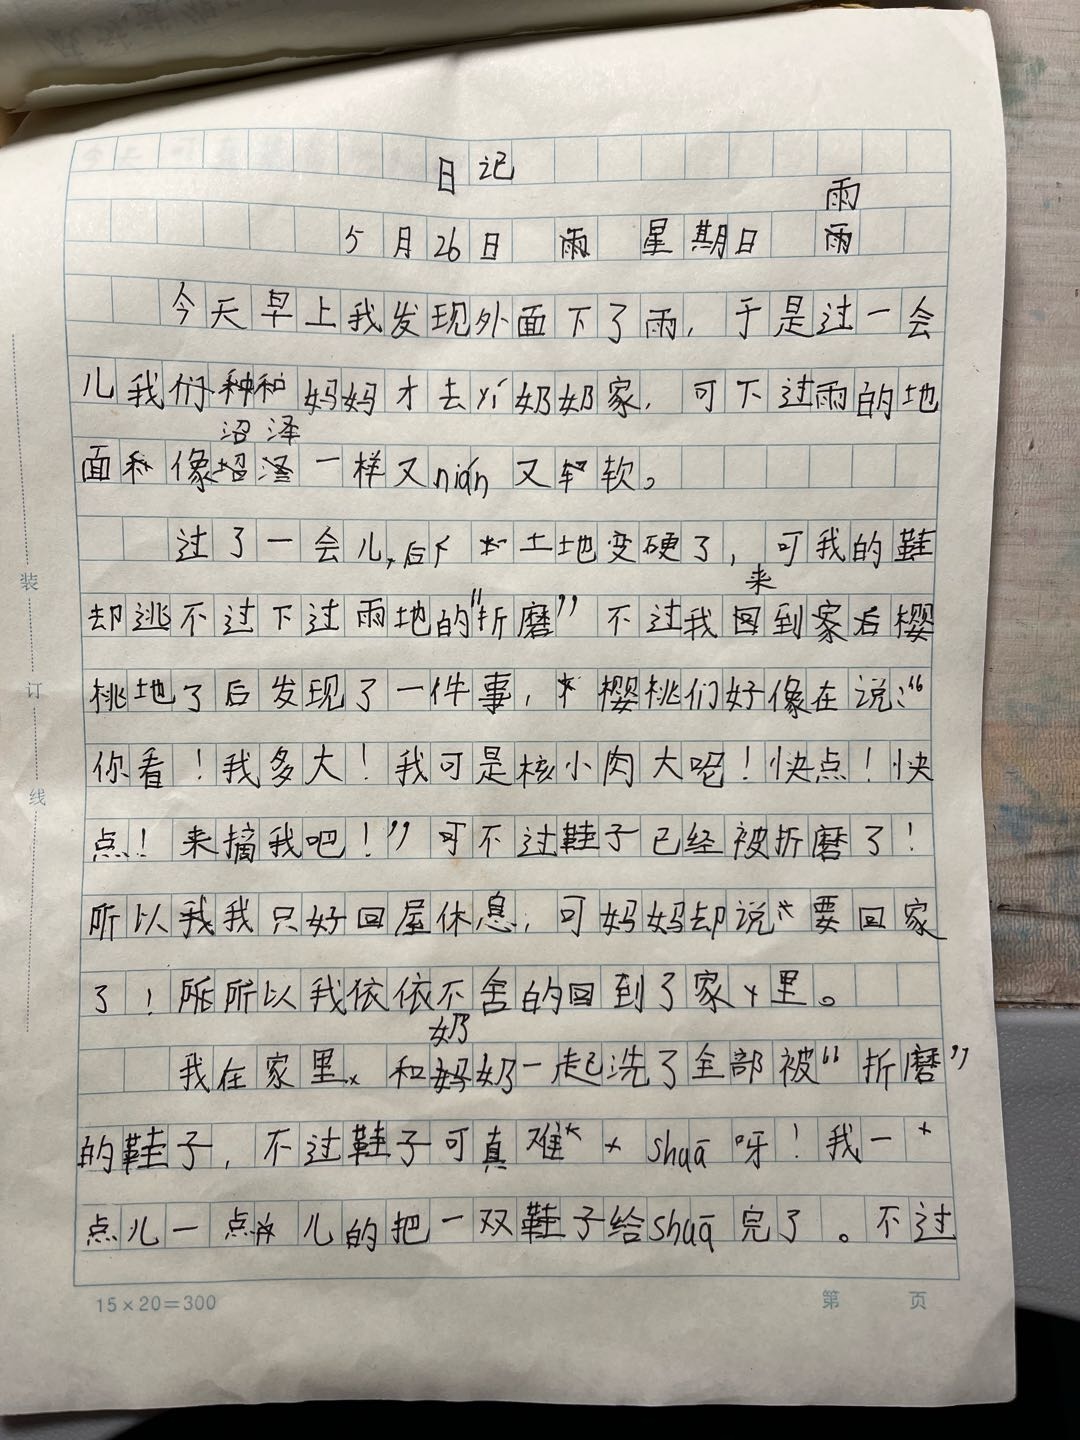 日记
雨
5月26日 雨 星期日 雨
今天早上我发现外面下了雨，于是过一会
儿我们种和妈妈才去yí奶奶家，可下过雨的地
沼泽
面和像沼泽一样又nián又软软。
过了一会儿，后 土地变硬了，可我的鞋
来
却逃不过下过雨地的“折磨”不过我回到家后樱
桃地了后发现了一件事，樱桃们好像在说：“
你看！我多大！我可是核小肉大呢！快点！快
点！来摘我吧！”可不过鞋子已经被折磨了！
所以我我只好回屋休息，可妈妈却说要回家
了！所所以我依依不舍的回到了家里。
奶
我在家里 和妈奶一起洗了全部被“折磨”
的鞋子，不过鞋子可真难 shuā呀！我一
点儿一点儿的把一双鞋子给shuā完了。不过
装
订
线
15×20=300
第 页